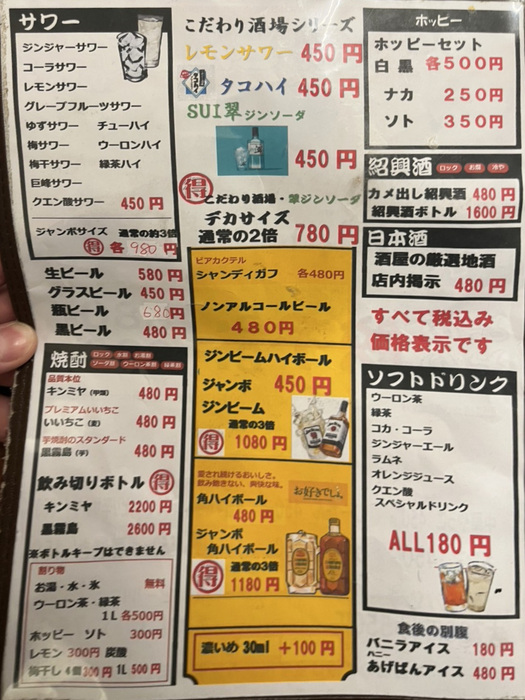 サワー
ジンジャーサワー
コーラサワー
レモンサワー
グレープフルーツサワー
ゆずサワー チューハイ
梅サワー ウーロンハイ
梅干サワー 緑茶ハイ
巨峰サワー
クエン酸サワー 450円
ジャンボサイズ 通常の約3倍
得 各980円
生ビール 580円
グラスビール 450円
瓶ビール 680円
黒ビール 480円
焼酎 ロック 水割 お湯割
ソーダ割 ウーロン茶割 緑茶割
品質本位
キンミヤ(甲類) 480円
プレミアムいいちこ
いいちこ(麦) 480円
芋焼酎のスタンダード
黒霧島(芋) 480円
飲み切りボトル 得
キンミヤ 2200円
黒霧島 2600円
※ボトルキープはできません
割り物
お湯・水・氷 無料
ウーロン茶・緑茶
1L 各500円
ホッピー ソト 300円
レモン 300円 炭酸
梅干し 4個 300円 1L 500円
こだわり酒場シリーズ
レモンサワー 450円
タコハイ 450円
SUI翠ジンソーダ
450円
得 こだわり酒場・翠ジンソーダ
デカサイズ
通常の2倍 780円
ビアカクテル
シャンディガフ 各480円
ノンアルコールビール
480円
ジンビームハイボール
ジャンボ 450円
ジンビーム
通常の3倍
得 1080円
愛され続けるおいしさ。
飲み飽きない、爽快な味。
お好きでしょ。
角ハイボール
480円
ジャンボ
角ハイボール
通常の3倍
得 1180円
濃いめ 30ml +100円
ホッピー
ホッピーセット
白 黒 各500円
ナカ 250円
ソト 350円
紹興酒 ロック お燗 冷や
カメ出し紹興酒 480円
紹興酒ボトル 1600円
日本酒
酒屋の厳選地酒
店内掲示 480円
すべて税込み
価格表示です
ソフトドリンク
ウーロン茶
緑茶
コカ・コーラ
ジンジャーエール
ラムネ
オレンジジュース
クエン酸
スペシャルドリンク
ALL180円
食後の別腹
バニラアイス 180円
ハニー
あげぱんアイス 480円